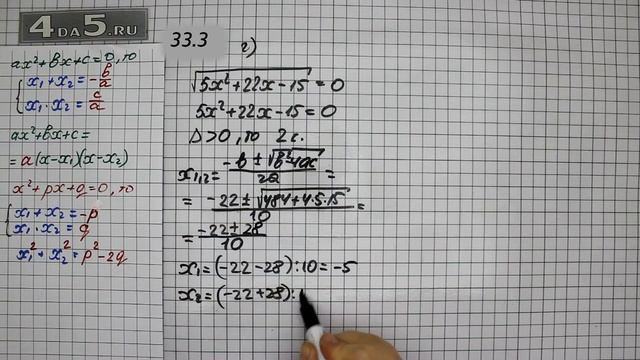 4DA5.RU
ax²+bx+c=0, то
{x₁+x₂=-b/a
x₁·x₂=c/a
ax²+bx+c=
=a(x-x₁)(x-x₂)
x²+px+q=0, то
{x₁+x₂=-p
x₁·x₂=q
x₁²+x₂²=p²-2q
33.3
г)
√(5x²+22x-15)=0
5x²+22x-15=0
Δ>0, то 2 с.
x₁,₂=(-b±√(b²-4ac))/2a=
=(-22±√(484+4·5·15))/10=
=(-22±28)/10
x₁=(-22-28):10=-5
x₂=(-22+28):